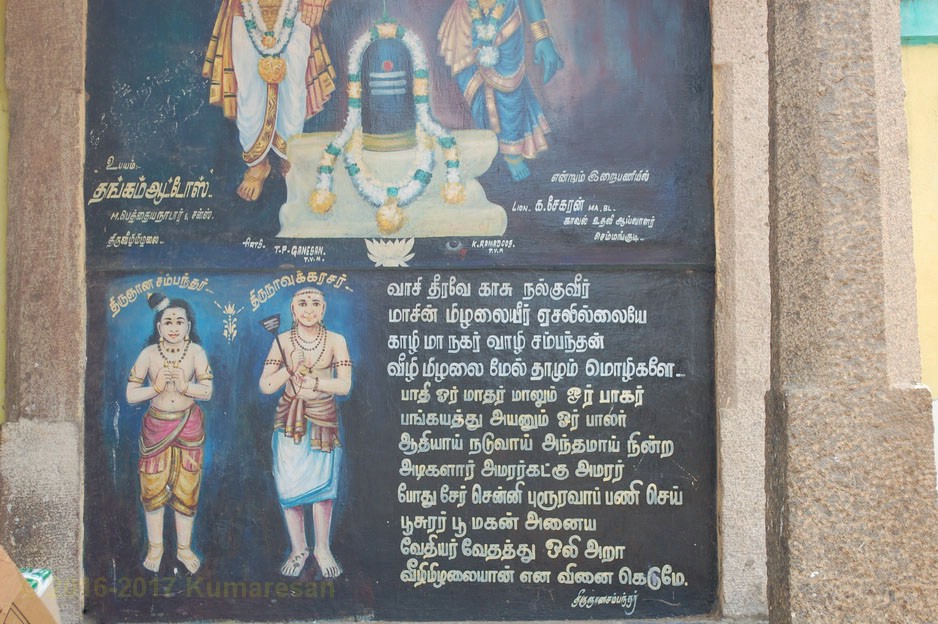 உபயம்:-
தங்கம் ஆட்டோஸ்..
M.பெத்தையநாடார் & சன்ஸ்.
திருவீழிமிழலை..
என்றும் இறைபணியில்
LION. க.சேகரன் MA, BL.
காவல் உதவி ஆய்வாளர்
செம்மங்குடி..
T.P-GANESAN.
T.V.M.
K.RAMADOSS.
T.V.M
திருஞான சம்பந்தர்..
திருநாவுக்கரசர்..
வாசி தீரவே காசு நல்குவீர்
மாசின் மிழலையீர் ஏசலில்லையே
காழி மா நகர் வாழி சம்பந்தன்
வீழி மிழலை மேல் தாழும் மொழிகளே...
பாதி ஓர் மாதர் மாலும் ஓர் பாகர்
பங்கயத்து அயனும் ஓர் பாலர்
ஆதியாய் நடுவாய் அந்தமாய் நின்ற
அடிகளார் அமரர்கட்கு அமரர்
போது சேர் சென்னி புரூரவாப் பணி செய்
பூசுரர் பூ மகன் அனைய
வேதியர் வேதத்து ஒலி அறா
வீழிமிழலையான் என வினை கெடுமே.
திருஞானசம்பந்தர்
-2017 Kumaresan